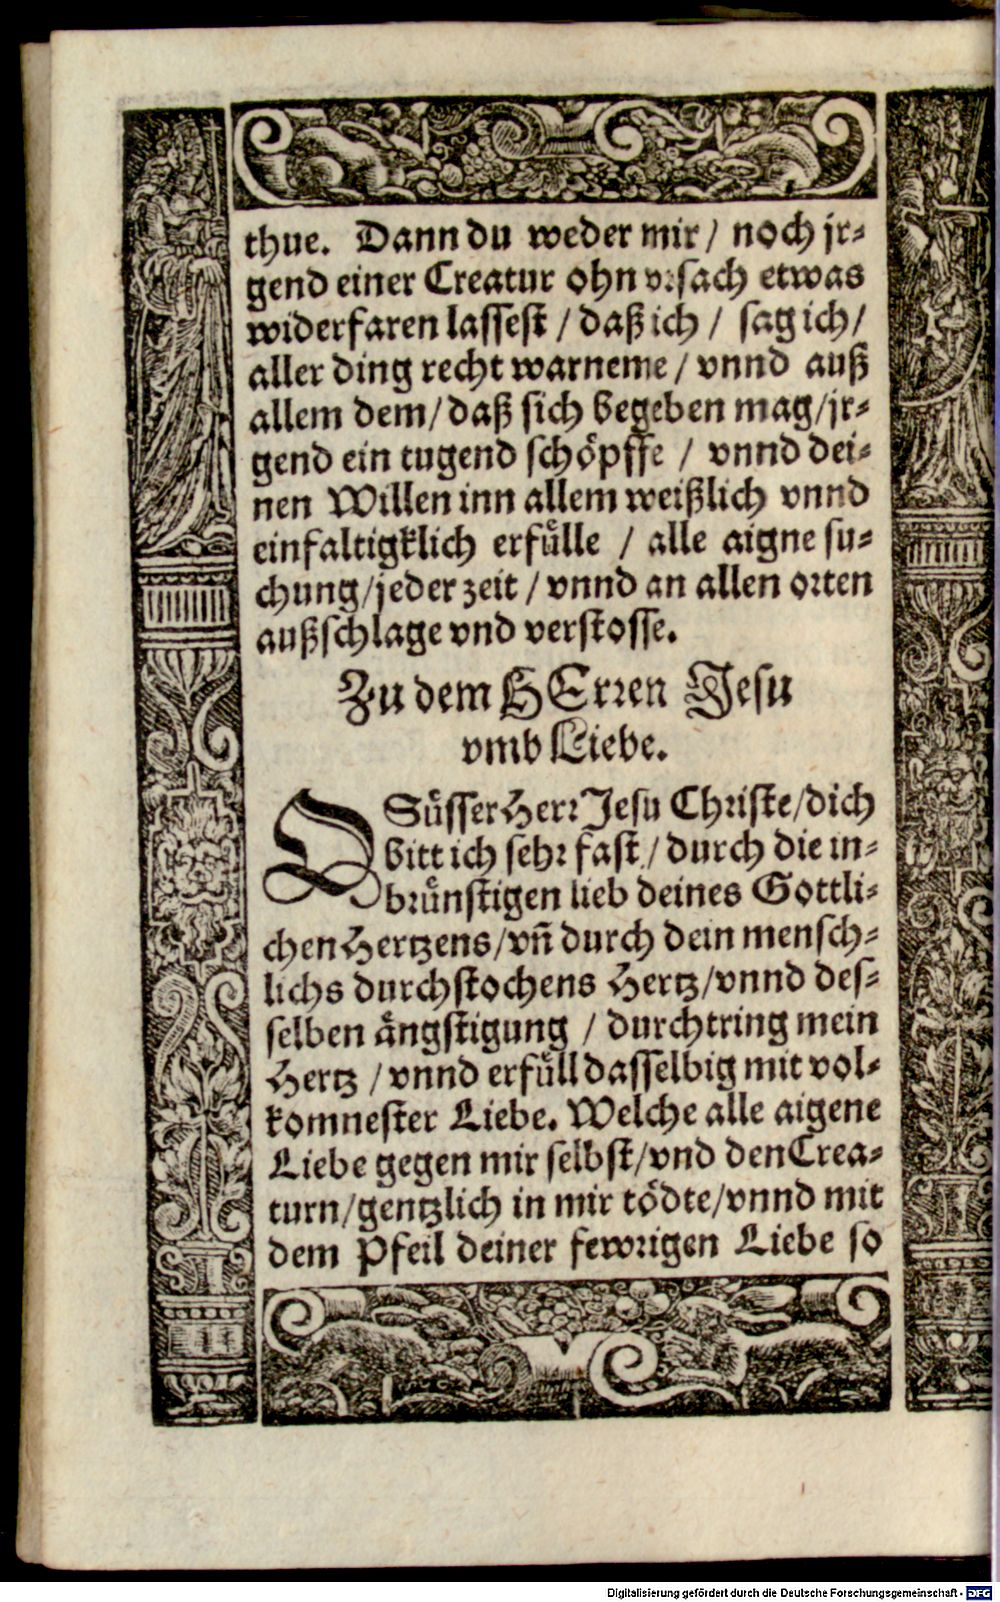 thue. Dann du weder mir / noch jr-
gend einer Creatur ohn vrsach etwas
widerfaren lassest / daß ich / sag ich /
aller ding recht warneme / vnnd auß
allem dem / daß sich begeben mag / jr-
gend ein tugend schöpffe / vnnd dei-
nen Willen inn allem weißlich vnnd
einfaltigklich erfülle / alle aigne su-
chung / jeder zeit / vnnd an allen orten
außschlage vnd verstosse.
Zu dem HErren Jesu
vmb Liebe.
O Süsser Herr Jesu Christe / dich
bitt ich sehr fast / durch die in-
brünstigen lieb deines Gottli-
chen Hertzens / vñ durch dein mensch-
lichs durchstochens Hertz / vnnd des-
selben ängstigung / durchtring mein
Hertz / vnnd erfüll dasselbig mit vol-
komnester Liebe. Welche alle aigene
Liebe gegen mir selbst / vnd den Crea-
turn / gentzlich in mir tödte / vnnd mit
dem Pfeil deiner fewrigen Liebe so
Digitalisierung gefördert durch die Deutsche Forschungsgemeinschaft - DFG